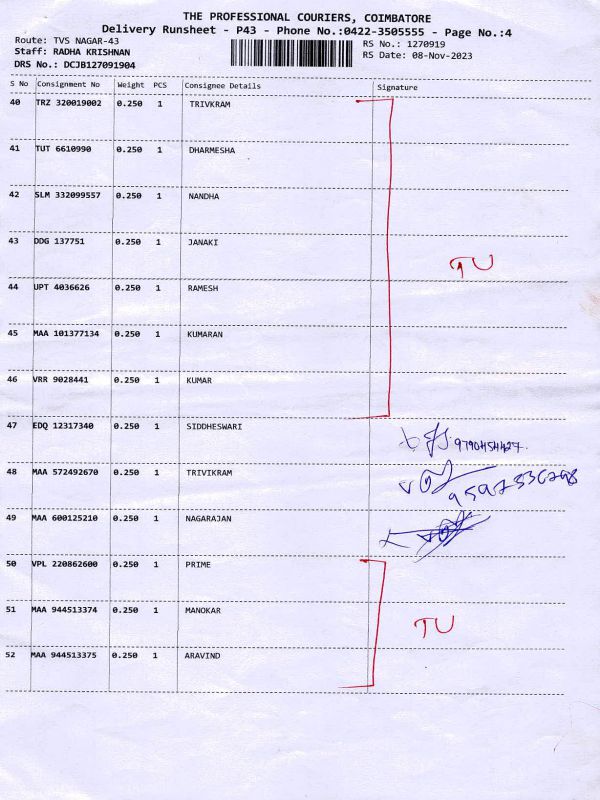 THE PROFESSIONAL COURIERS, COIMBATORE
Delivery Runsheet - P43 - Phone No.:0422-3505555 - Page No.:4
Route: TVS NAGAR-43 RS No.: 1270919
Staff: RADHA KRISHNAN RS Date: 08-Nov-2023
DRS No.: DCJB127091904
S No Consignment No Weight PCS Consignee Details Signature
40 TRZ 320019002 0.250 1 TRIVKRAM
41 TUT 6610990 0.250 1 DHARMESHA
42 SLM 332099557 0.250 1 NANDHA
43 DDG 137751 0.250 1 JANAKI
TU
44 UPT 4036626 0.250 1 RAMESH
45 MAA 101377134 0.250 1 KUMARAN
46 VRR 9028441 0.250 1 KUMAR
47 EDQ 12317340 0.250 1 SIDDHESWARI
48 MAA 572492670 0.250 1 TRIVIKRAM
49 MAA 600125210 0.250 1 NAGARAJAN
50 VPL 220862600 0.250 1 PRIME
51 MAA 944513374 0.250 1 MANOKAR
TU
52 MAA 944513375 0.250 1 ARAVIND